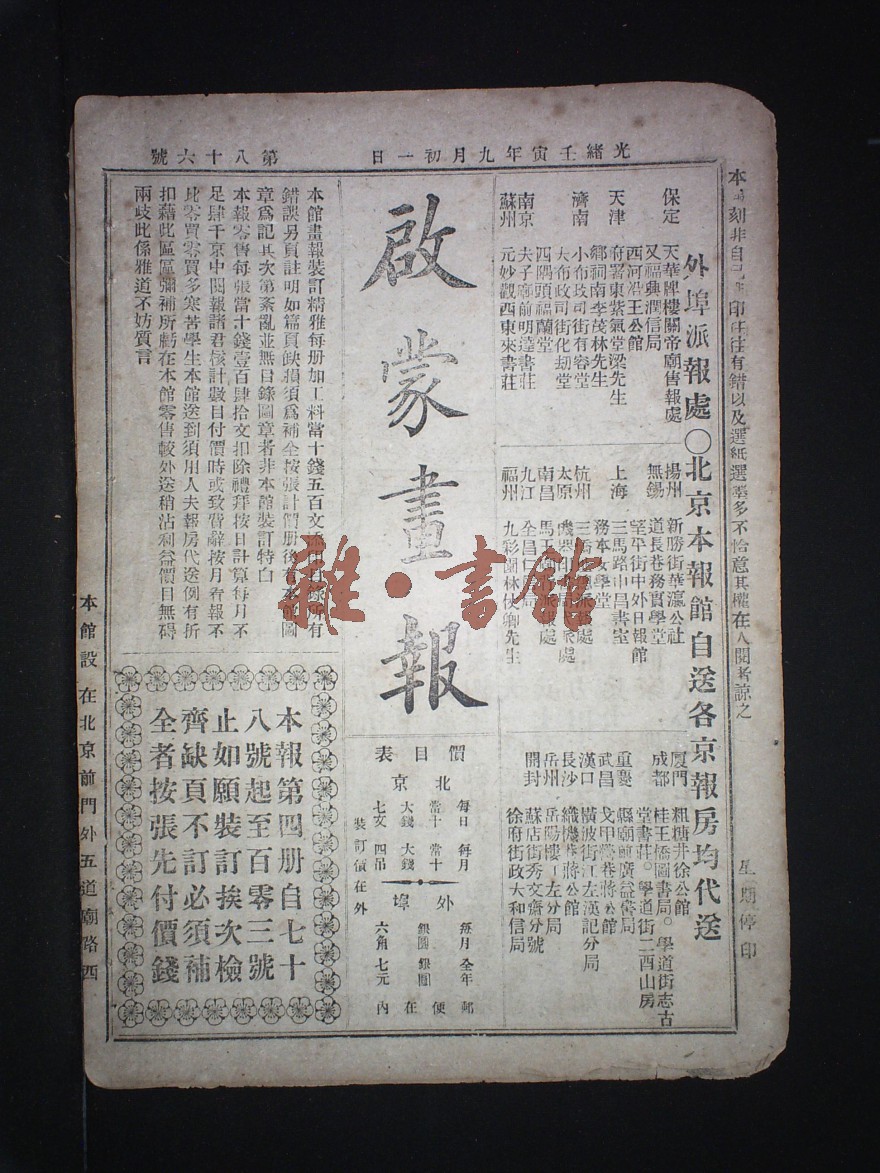 光緒壬寅年九月初一日
第八十六號
外埠派報處○北京本報館自送各京報房均代送
保定
天華牌樓關帝廟售報處
又福興潤信局
西河沿王公館
天津
府署東紫氣堂梁先生
鄉祠南李茂林先生
濟南
小布政司街有容堂
大布政司街化劫堂
四隅頭福蘭堂
南京
夫子廟前明達書莊
蘇州
元妙觀西東來書莊
揚州
新勝街華瀛公社
無錫
道長巷務實學堂
上海
望平街中外日報館
三馬路中昌書室
務本女學堂
杭州
太原
南昌
九江
福州
廈門
粗糖井徐公館
成都
桂王橋圖書局○學道街志古
堂書莊○學道街二酉山房
重慶
縣廟前廣益書局
武昌
戈甲營巷蔣公館
漢口
橫波街江左漢記分局
長沙
織機巷蔣公館
岳州
岳陽樓江左分局
開封
蘇店街秀文齋分號
徐府街政大和信局
星期停印
啟蒙畫報
價目表
北京
每日
當十
大錢
七文
每月
當十
大錢
四吊
裝訂價在外
外埠
每月
銀圓
六角
全年
銀圓
七元
郵便在內
本館畫報裝訂精雅每冊加工料當十錢五百文
錯誤另頁註明如篇頁缺損須為補全按張計價冊後有本館圖
章為記其次第紊亂並無目錄圖章者非本館裝訂特白
本報零售每張當十錢壹百肆拾文扣除禮拜按日計算每月不
足肆千京中閱報諸君核計數目付價時或致費辭按月看報不
比零買零買多寒苦學生本館送到須用人夫報房代送例有折
扣藉此區區彌補所虧在本館零售較外送稍沾利益價目無礙
兩歧此係雅道不妨質言
本報第四册自七十
八號起至百零三號
止如願裝訂挨次檢
齊缺頁不訂必須補
全者按張先付價錢
本館設在北京前門外五道廟路西
雜·書館